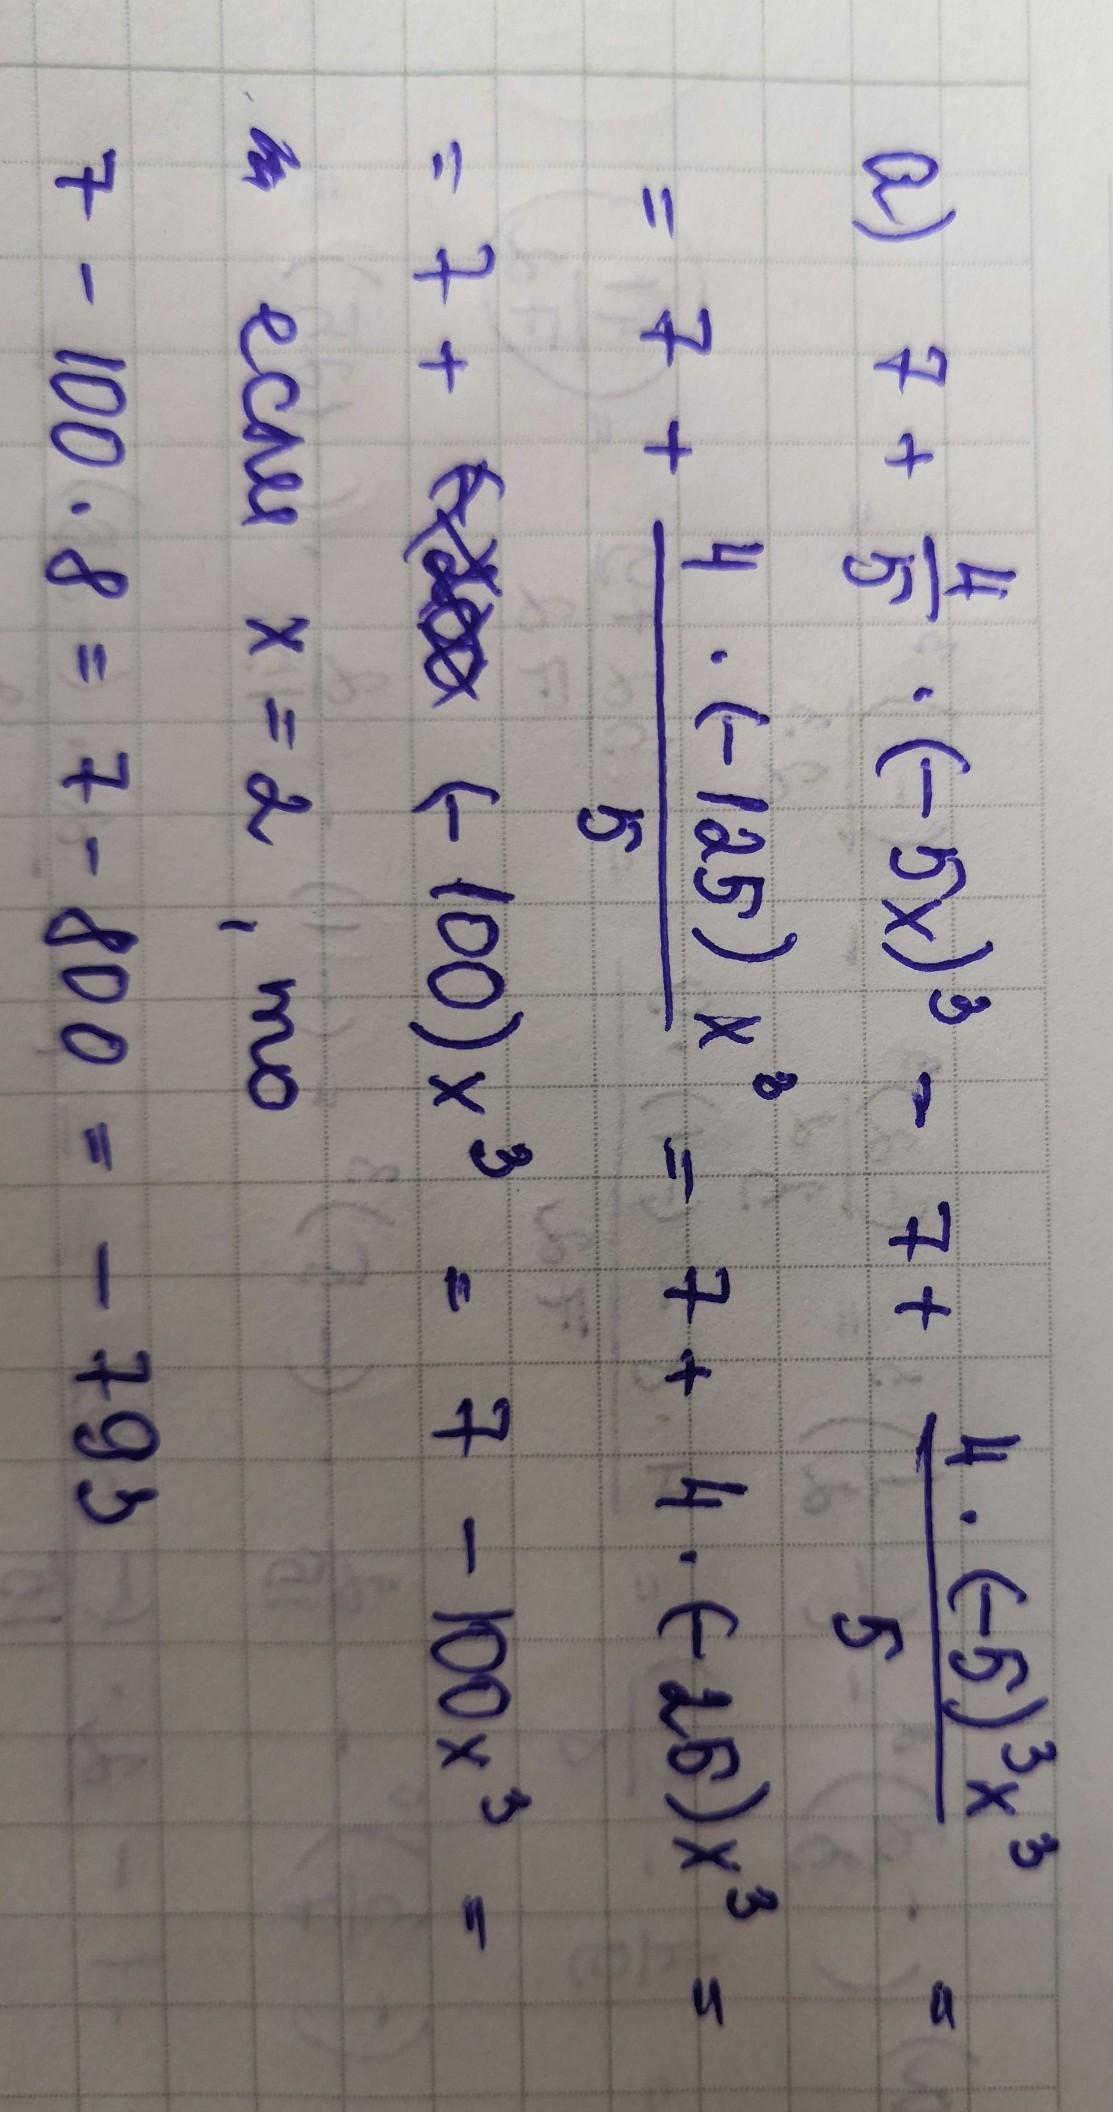 а) 7 + 4/5 · (-5x)³ - 7 + 4 · (-5)³x³ / 5 =
= 7 + 4 · (-125)x³ / 5 = 7 + 4 · (-25)x³ =
= 7 + (-100)x³ = 7 - 100x³ =
если x = 2, то
7 - 100 · 8 = 7 - 800 = - 793